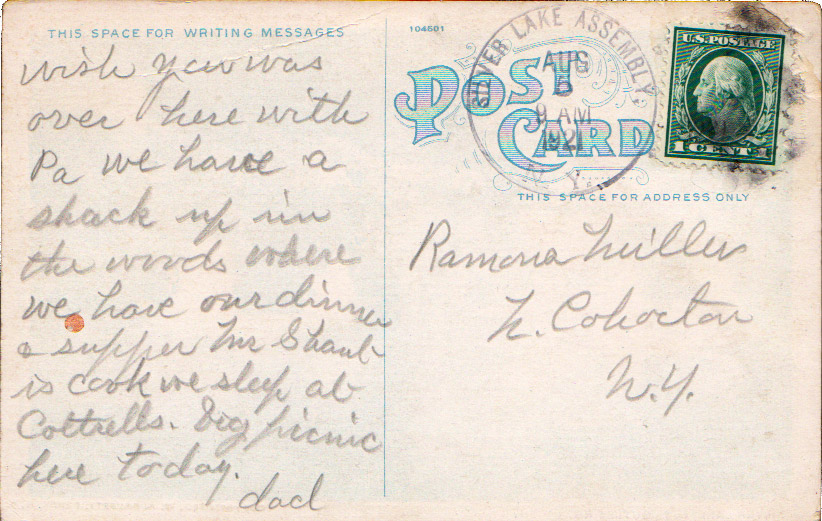 THIS SPACE FOR WRITING MESSAGES
wish you was
over here with
Pa we have a
shack up in
the woods where
we have our dinner
& supper Mr Shaub
is cook we sleep at
Cottrells. Big picnic
here today.
dad
104601
POST CARD
SILVER LAKE ASSEMBLY,
AUG
5
9 AM
1921
N.Y.
U.S. POSTAGE
1 CENT 1
THIS SPACE FOR ADDRESS ONLY
Ramona Miller
N. Cohocton
N.Y.